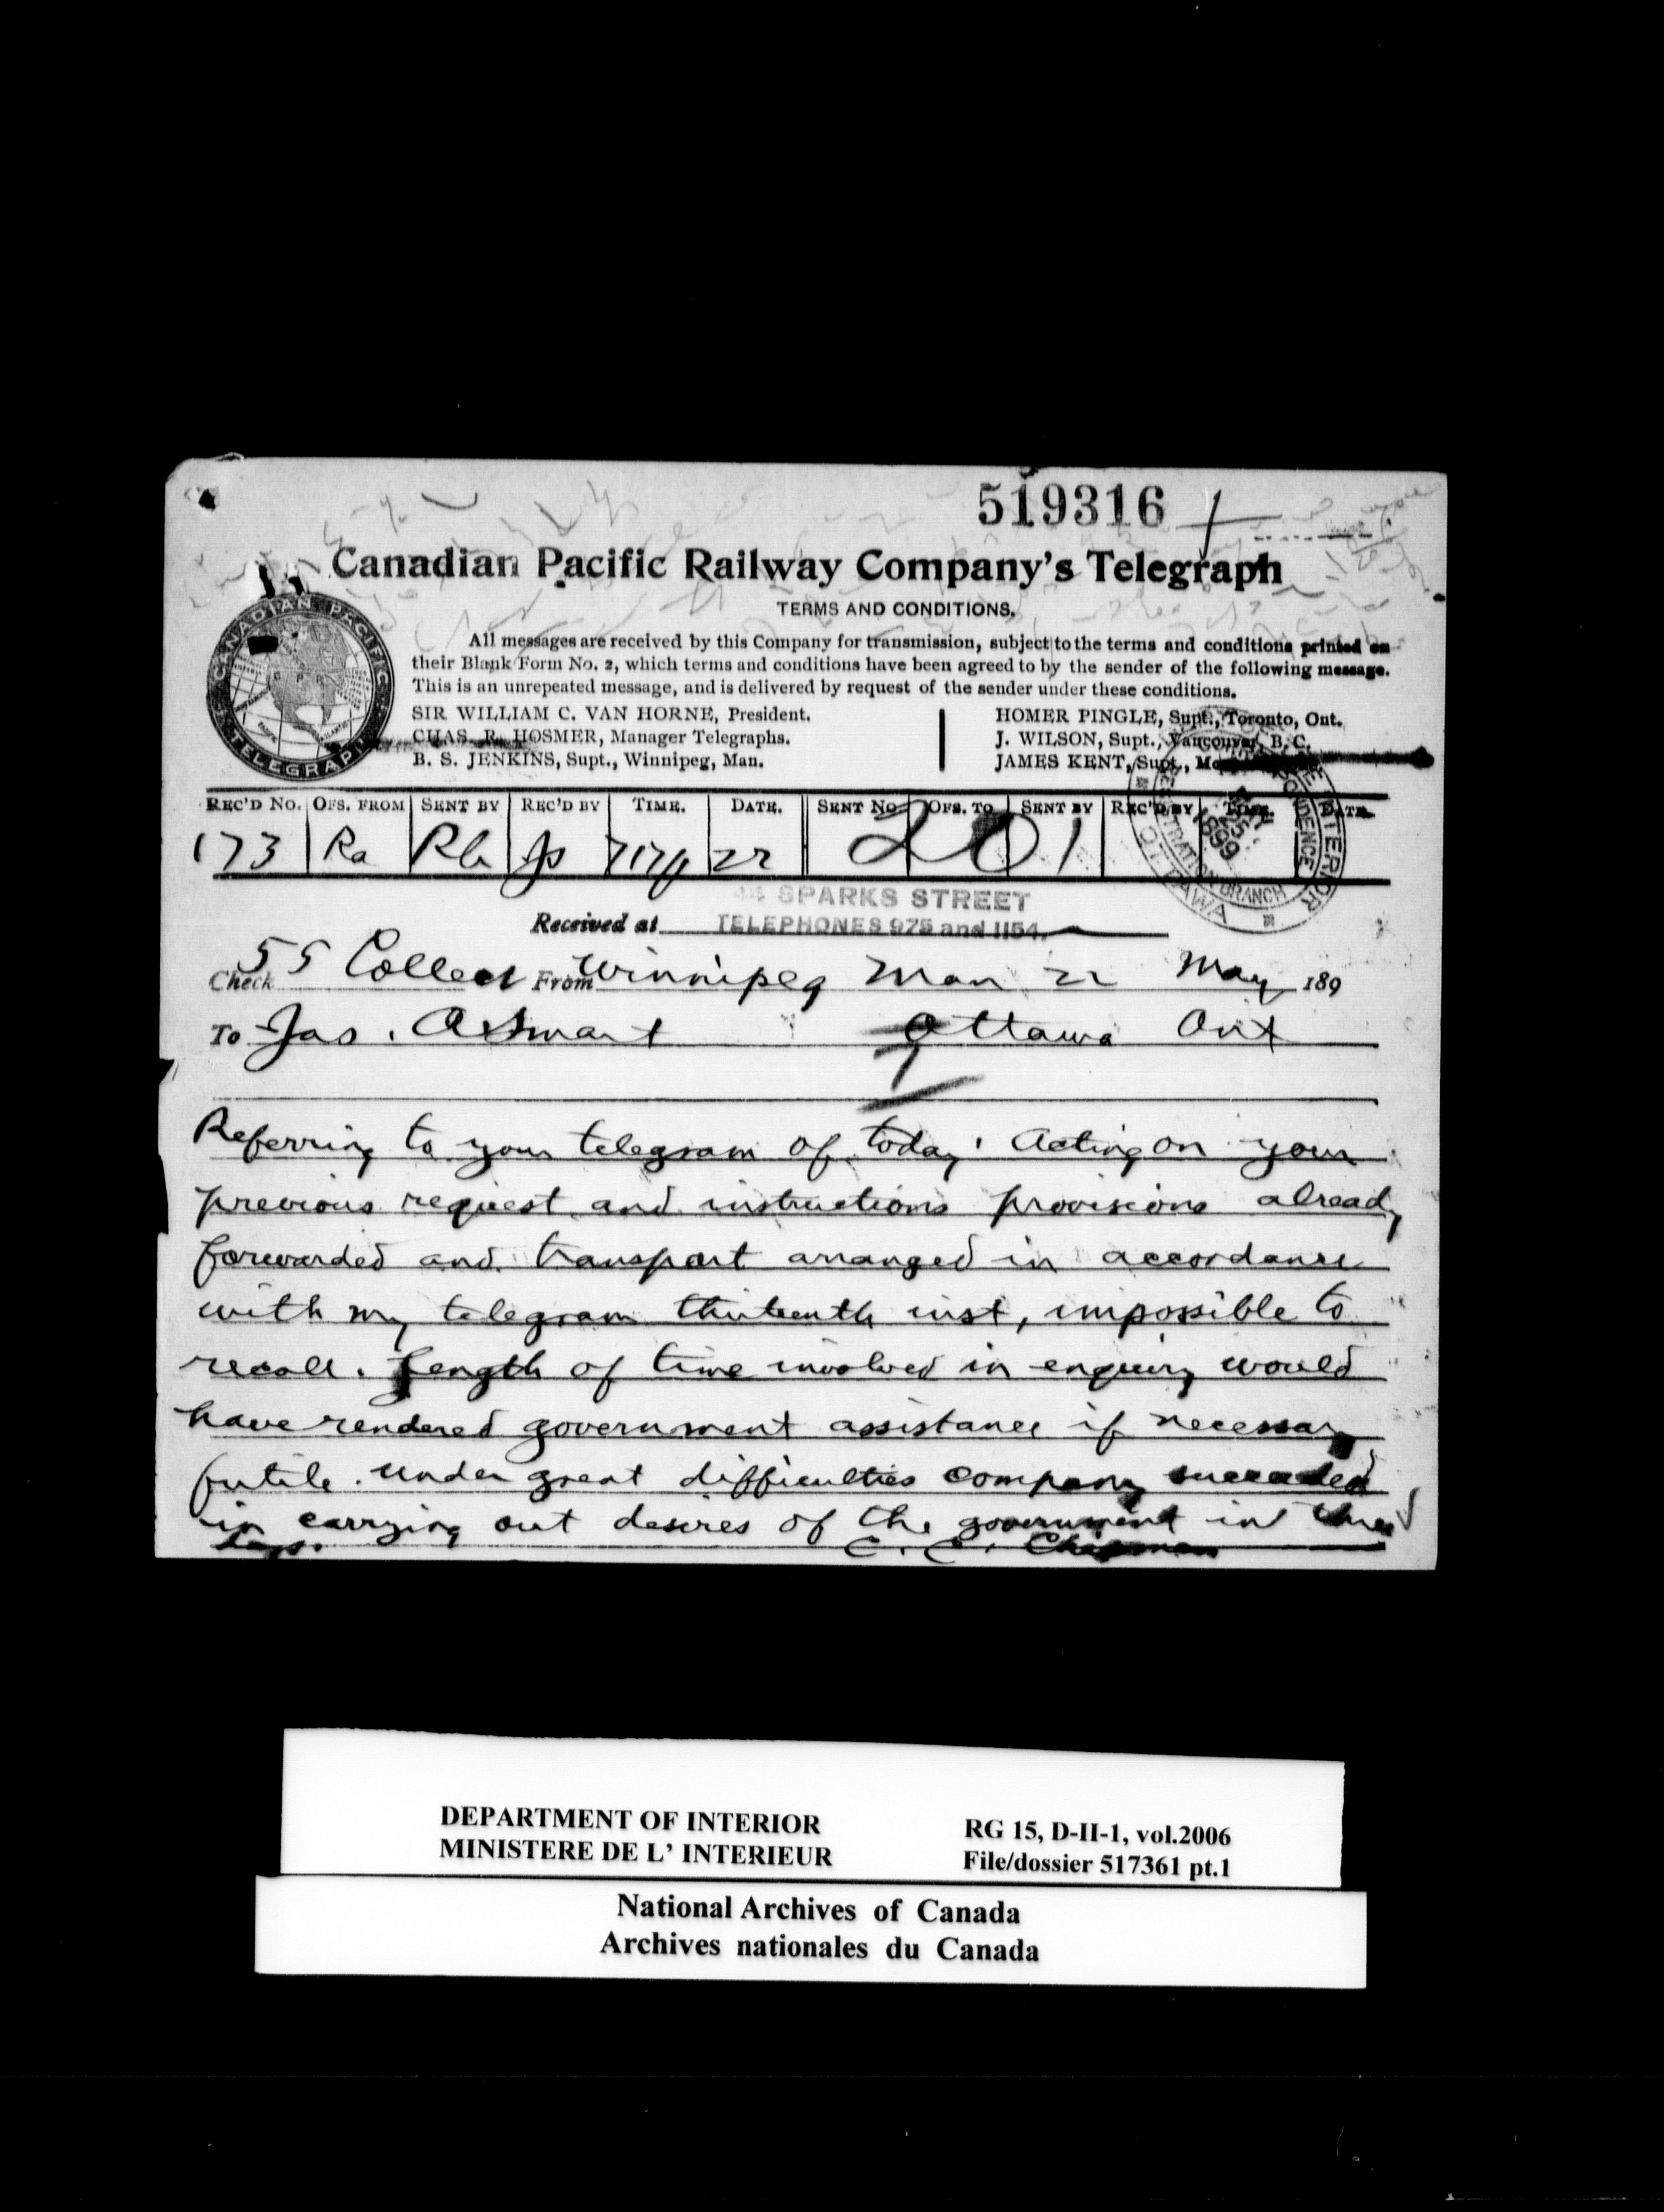 519316
Canadian Pacific Railway Company's Telegraph
TERMS AND CONDITIONS.
All messages are received by this Company for transmission, subject to the terms and conditions printed on
their Blank Form No. 2, which terms and conditions have been agreed to by the sender of the following message.
This is an unrepeated message, and is delivered by request of the sender under these conditions.
CANADIAN PACIFIC TELEGRAPH
SIR WILLIAM C. VAN HORNE, President. HOMER PINGLE, Supt., Toronto, Ont.
CHAS. R. HOSMER, Manager Telegraphs. J. WILSON, Supt., Vancouver, B. C.
B. S. JENKINS, Supt., Winnipeg, Man. JAMES KENT, Supt.,
REC'D NO. OFS. FROM SENT BY REC'D BY TIME. DATE. SENT NO. OFS. TO SENT BY REC'D BY TIME. DATE.
173 Ra 22 201
1899
OTTAWA
44 SPARKS STREET
Received at TELEPHONES 975 and 1154.
Check 55 Collect From Winnipeg Man 22 May 189
To Jas. A Smart Ottawa Ont
Referring to your telegram of today. Acting on your
previous request and instructions provisions already
forwarded and transport arranged in accordance
with my telegram thirteenth inst, impossible to
recall. Length of time involved in enquiry would
have rendered government assistance if necessary
futile. Under great difficulties company succeeded
in carrying out desires of the government in three
days. C. C. Chipman
DEPARTMENT OF INTERIOR RG 15, D-II-1, vol.2006
MINISTERE DE L' INTERIEUR File/dossier 517361 pt.1
National Archives of Canada
Archives nationales du Canada